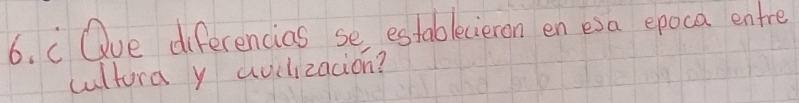 6. ¿ Que diferencias se establecieron en esa epoca entre
cultura y civilización?